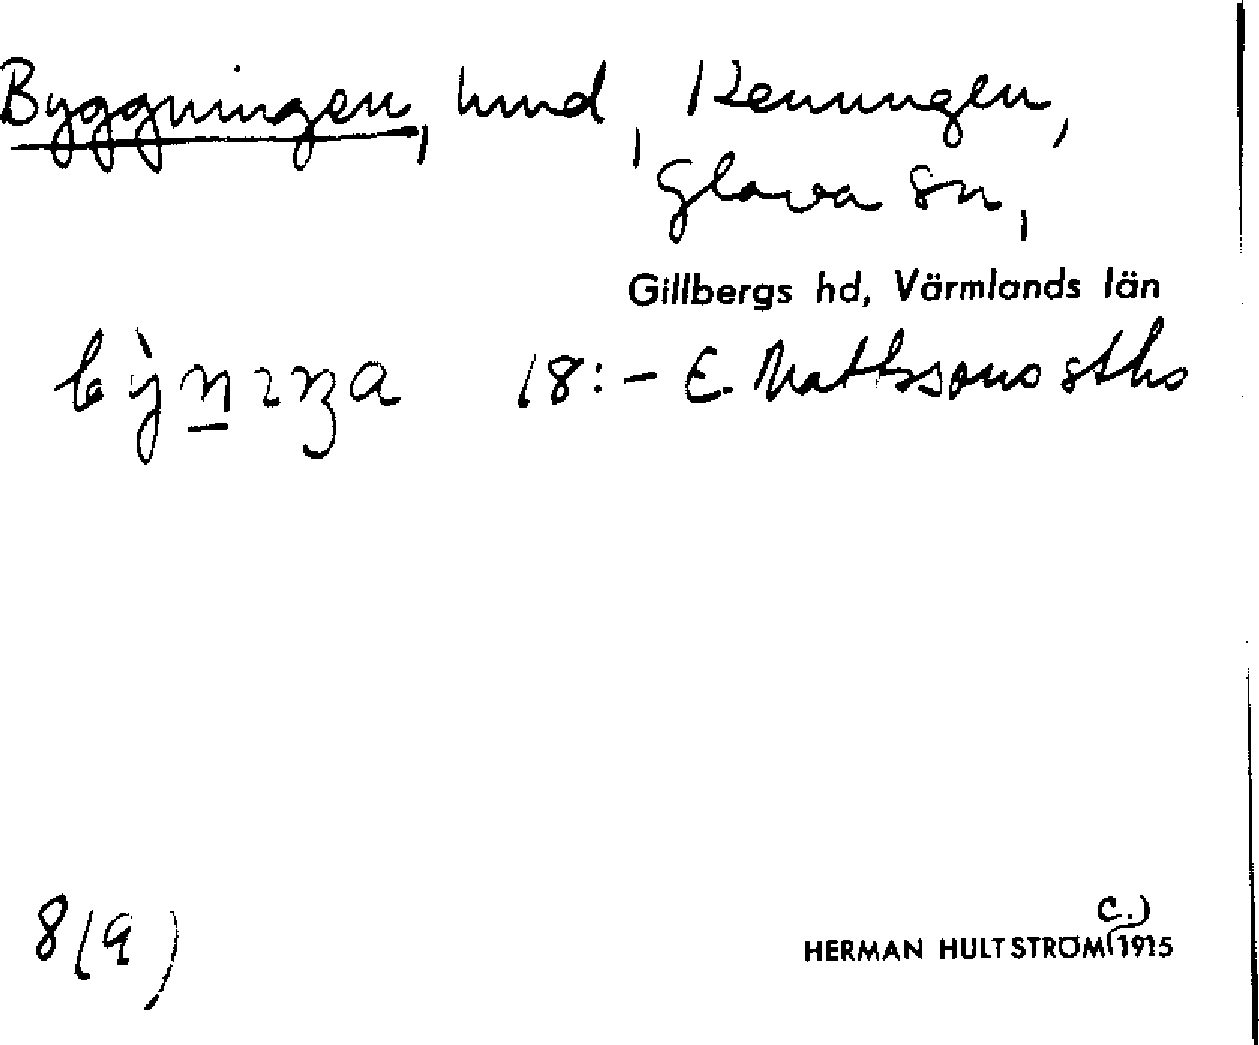 Byggningen, hmd, Renungen,
Glava sn,
Gillbergs hd, Värmlands län
18:- E. Mattssons sths
8(9)
c.)
HERMAN HULTSTRÖM 1915